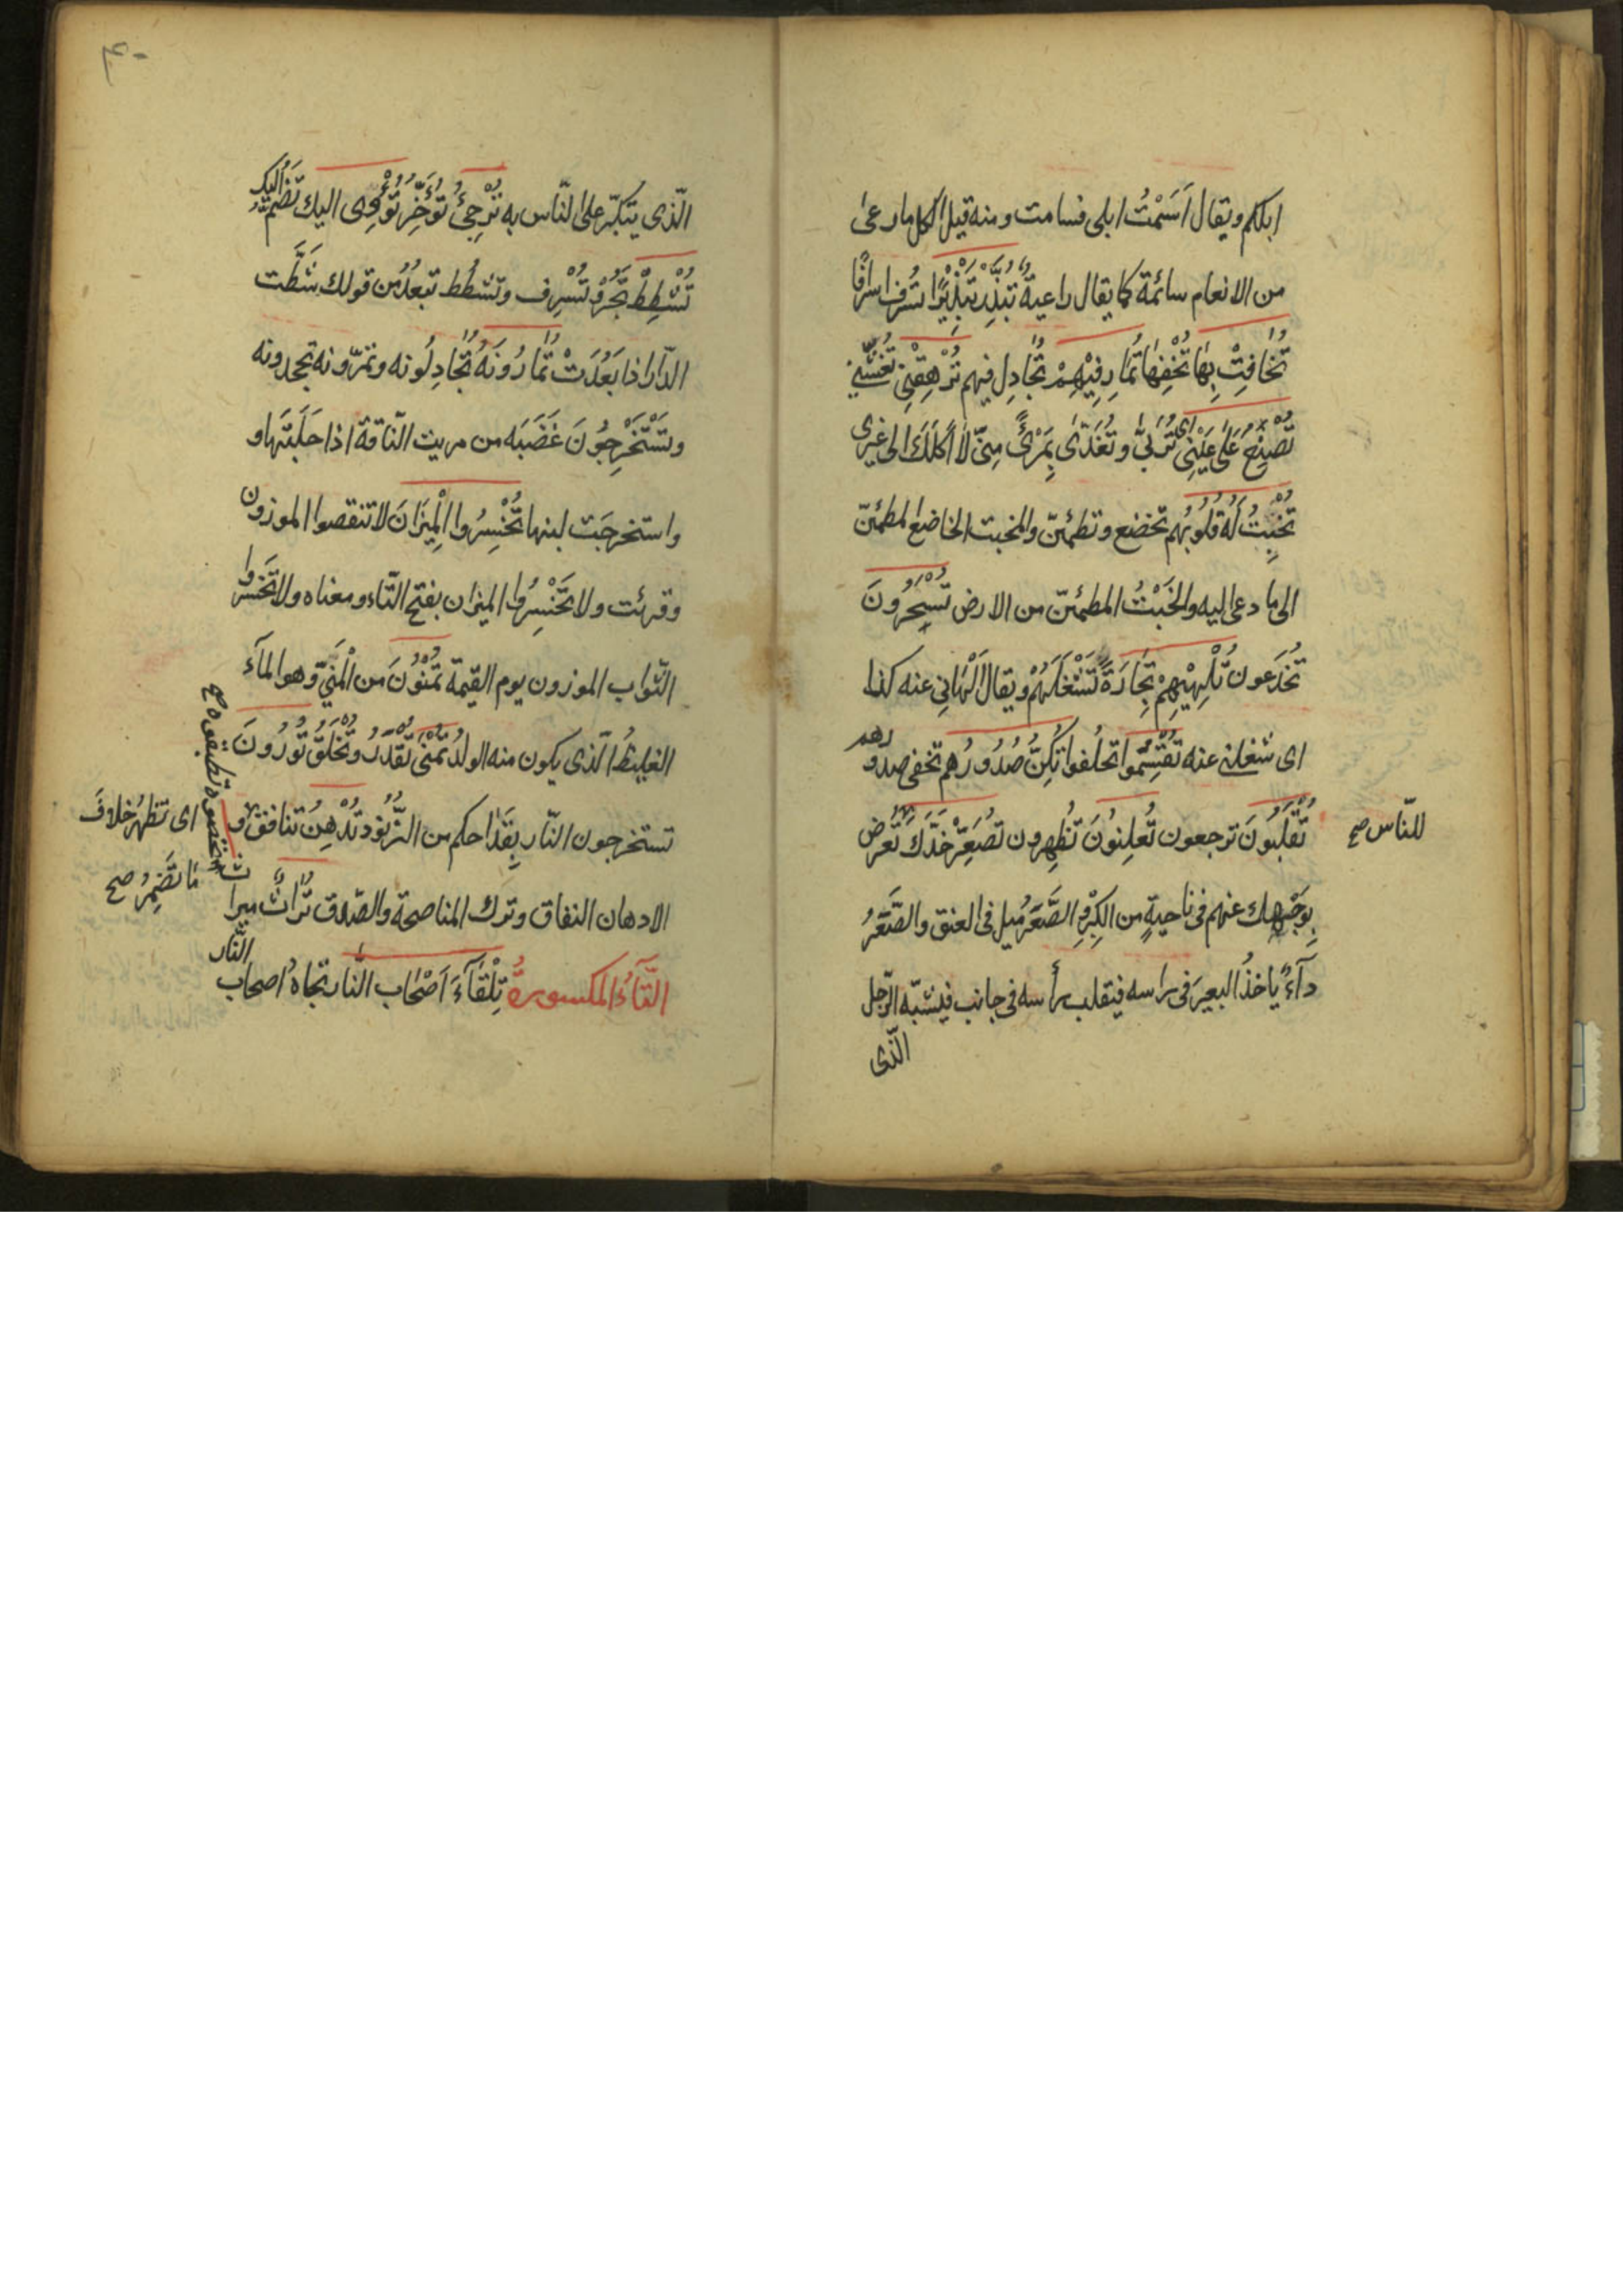 ابلكم ويقال اَسَمْتُ ابلى فسامت ومنه قيل لكل ما رعى
من الانعام سائمة كما يقال راعية تُبَذِّرْ تَبْذِيْرًا تُسْرف اسرافًا
تُخَافِتْ بِهَا تُخْفِهَا تُمَارِ فِيْهِمْ تُجَادِل فيهم تُرْهِقْنِى تُغَشِّنى
تُصْنَعَ عَلٰى عَيْنِى اى تُرَبّٰى وتُغَذّٰى بِمَرْئًى مِنّى لا اَكِلُكَ الى غيرى
تُخْبِتُ لَهُ قُلُوبُهم تخضع وتطمئنّ والمخبت الخاضع المطمئنّ
الى ما دعى اليه والخَبْتُ المطمئنّ من الارض تُسْحَرُونَ
تُخْدَعون تُلْهِيْهِمْ تِجَارَةٌ تَشْغَلُهُمْ ويقال اَلْهَانِى عنه كذا
اى شغلنى عنه تُقْسِمُوا تحلفوا تُكِنُّ صُدُورُهم تخفى صدورهم
تُقْلَبُونَ ترجعون تُعلِنُونَ تُظهِرون تُصَعِّرْ خَدَّكَ تُعْرِض
للنّاس صح
بِوَجْهِك عنهم فى ناحيةٍ من الكِبْرِ الصَّعَرُ ميل فى العنق والصَّعَرُ
دآءٌ ياخذُ البعيرَ فى راسه فيقلب رأسه فى جانب فيشبّه الرّجل
الّذى
٤٠
الّذى يتكبّر على النّاس به تُرْجِئُ تُؤَخِّرُ تُؤْوِى اليك تَضُمُّ اليك
تُشْطِطْ تَجُرْ وتُسْرِف وتشطُط تبعُدُ من قولك شَطَّت
الدّار اذا بَعُدَتْ تُمَارُونَهُ تُجَادِلُونه وتمرونه تجحدونه
وتَسْتَخْرِجُونَ غَضَبَه من مريت النّاقة اذا حَلَبْتَها و
واستخرجَت لبنها تُخْسِرُوا الْمِيْزَانَ لا تنقصوا الموزون
وقرئت ولا تَخْسِرُوا الميزان بفتح التّاء ومعناه ولا تَخْسَروا
الثّواب الموزون يوم القيمة تُمْنُوْنَ من الْمَنِيّ وهو المآء
الغليظُ الّذى يكون منه الولدُ تُمْنٰى تُقَدَّرُ وتُخْلَقُ تُورُونَ
تستخرجون النّار بِقَدْحكم من الزّنُود تُدْهِنُ تنافق و
اى تظهرُ خلافَ
ما تُضْمِرُ صح
الادهان النفاق وترك المناصحة والصّدق تُرَاثٌ ميرا
ث
النَّار
التَّآءُ المكسورةُ تِلْقَآءَ اَصْحَاب النَّار تجاهَ اصحاب